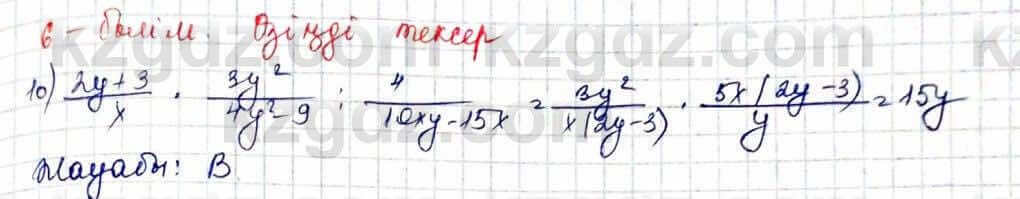 6 - бөлім. Өзіңді тексер
10) \frac{2y+3}{x} \cdot \frac{3y^2}{4y^2-9} : \frac{y}{10xy-15x} = \frac{3y^2}{x(2y-3)} \cdot \frac{5x(2y-3)}{y} = 15y
Жауабы: B